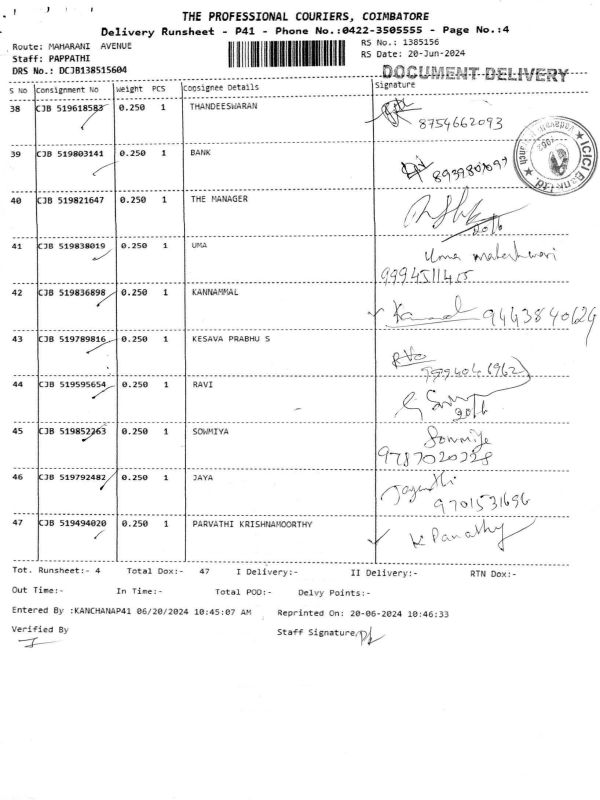 THE PROFESSIONAL COURIERS, COIMBATORE
Delivery Runsheet - P41 - Phone No.:0422-3505555 - Page No.:4
Route: MAHARANI AVENUE
RS No.: 1385156
Staff: PAPPATHI
RS Date: 20-Jun-2024
DRS No.: DCJB138515604
DOCUMENT DELIVERY
S No Consignment No Weight PCS Consignee Details Signature
38 CJB 519618583 0.250 1 THANDEESWARAN
8754662093
39 CJB 519803141 0.250 1 BANK
ICICI Bank Ltd.
40 CJB 519821647 0.250 1 THE MANAGER
20/6
41 CJB 519838019 0.250 1 UMA Uma maheshwari
9994511455
42 CJB 519836898 0.250 1 KANNAMMAL
9443840624
43 CJB 519789816 0.250 1 KESAVA PRABHU S
44 CJB 519595654 0.250 1 RAVI
20/6
45 CJB 519852263 0.250 1 SOWMIYA Sowmiye
9787020228
46 CJB 519792482 0.250 1 JAYA Jayanthi
9701531696
47 CJB 519494020 0.250 1 PARVATHI KRISHNAMOORTHY
Tot. Runsheet:- 4 Total Dox:- 47 I Delivery:- II Delivery:- RTN Dox:-
Out Time:- In Time:- Total POD:- Delvy Points:-
Entered By :KANCHANAP41 06/20/2024 10:45:07 AM Reprinted On: 20-06-2024 10:46:33
Verified By Staff Signature